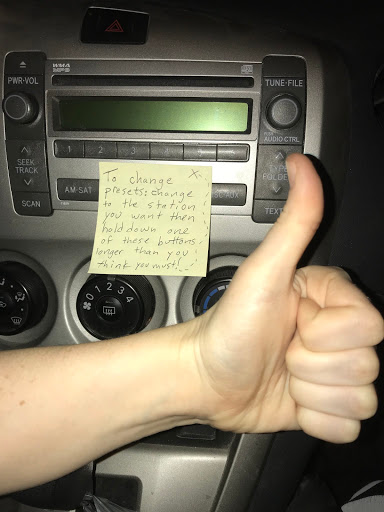 WMA
MP3
PWR·VOL
TUNE·FILE
PUSH
AUDIO CTRL
1 2 3
SEEK
TRACK
SCAN
AM SAT
TEXT
To change
presets: change
to the station
you want then
hold down one
of these buttons
longer than you
think you must!
0 1 2 3 4